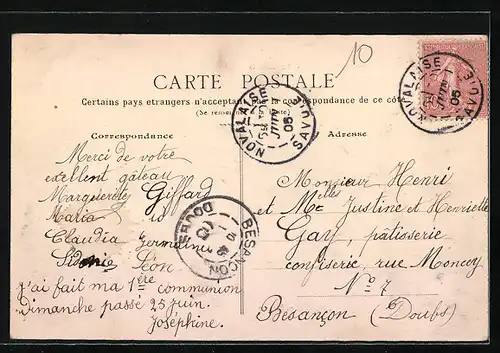 10
CARTE POSTALE
Certains pays etrangers n'acceptant pas la correspondance de ce côté
(Se
Correspondance
Adresse
NOVALAISE
SAVOIE
JUIN
05
NOVALAISE
SAVOIE
JUIN
05
Merci de votre
exellent gâteau
Marguerite Giffard
Maria
Claudia Germaine
Sidonie Léon
j'ai fait ma 1ère communion
Dimanche passé 25 juin.
Joséphine.
BESANÇON
DOUBS
Monsieur Henri
et Melles Justine et Henriette
Gay, pâtisserie
confiserie, rue Moncey
No 7
Besançon (Doubs)